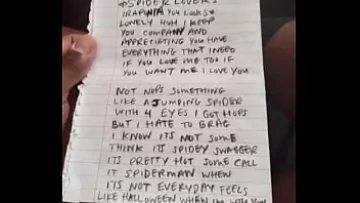 SPIDER LOVERS
YOU LOOK SO
LONELY HUH I KEEP
YOU COMPANY AND
APPRECIATING YOU HAVE
EVERYTHING THAT I NEED
IF YOU LOVE ME TOO IF
YOU WANT ME I LOVE YOU
NOT NOPS SOMETHING
LIKE A JUMPING SPIDER
WITH 4 EYES I GOT HOPS
BUT I HATE TO BRAG
I KNOW ITS NOT SOME
THINK ITS SPIDEY SWAGGER
ITS PRETTY HOT SOME CALL
IT SPIDERMAN WHEN
ITS NOT EVERYDAY FEELS
LIKE HALLOWEEN WHEN